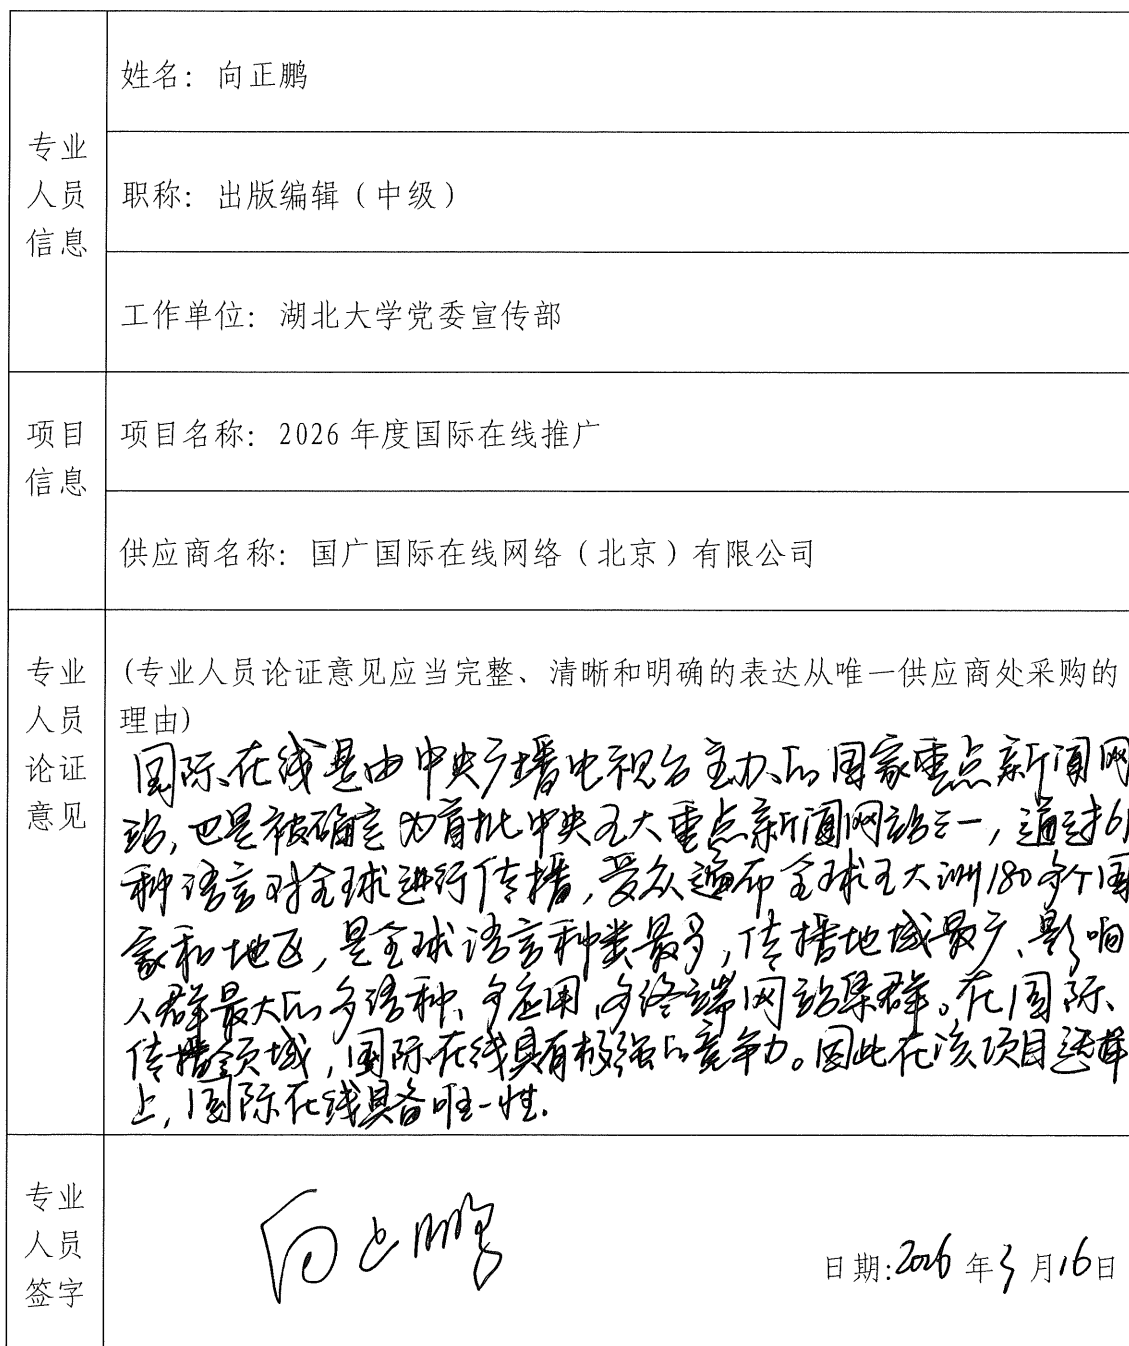 专业人员信息
姓名：向正鹏
职称：出版编辑（中级）
工作单位：湖北大学党委宣传部
项目信息
项目名称：2026 年度国际在线推广
供应商名称：国广国际在线网络（北京）有限公司
专业人员论证意见
(专业人员论证意见应当完整、清晰和明确的表达从唯一供应商处采购的
理由)
国际在线是由中央广播电视台主办的国家重点新闻网
站，也是被确定为首批中央五大重点新闻网站之一，通过61
种语言对全球进行传播，受众遍布全球五大洲180多个国
家和地区，是全球语言种类最多，传播地域最广、影响
人群最大的多语种、多应用、多终端网站集群。在国际
传播领域，国际在线具有极强的竞争力。因此在该项目选择
上，国际在线具备唯一性.
专业人员签字
向正鹏
日期:2026 年3 月16日